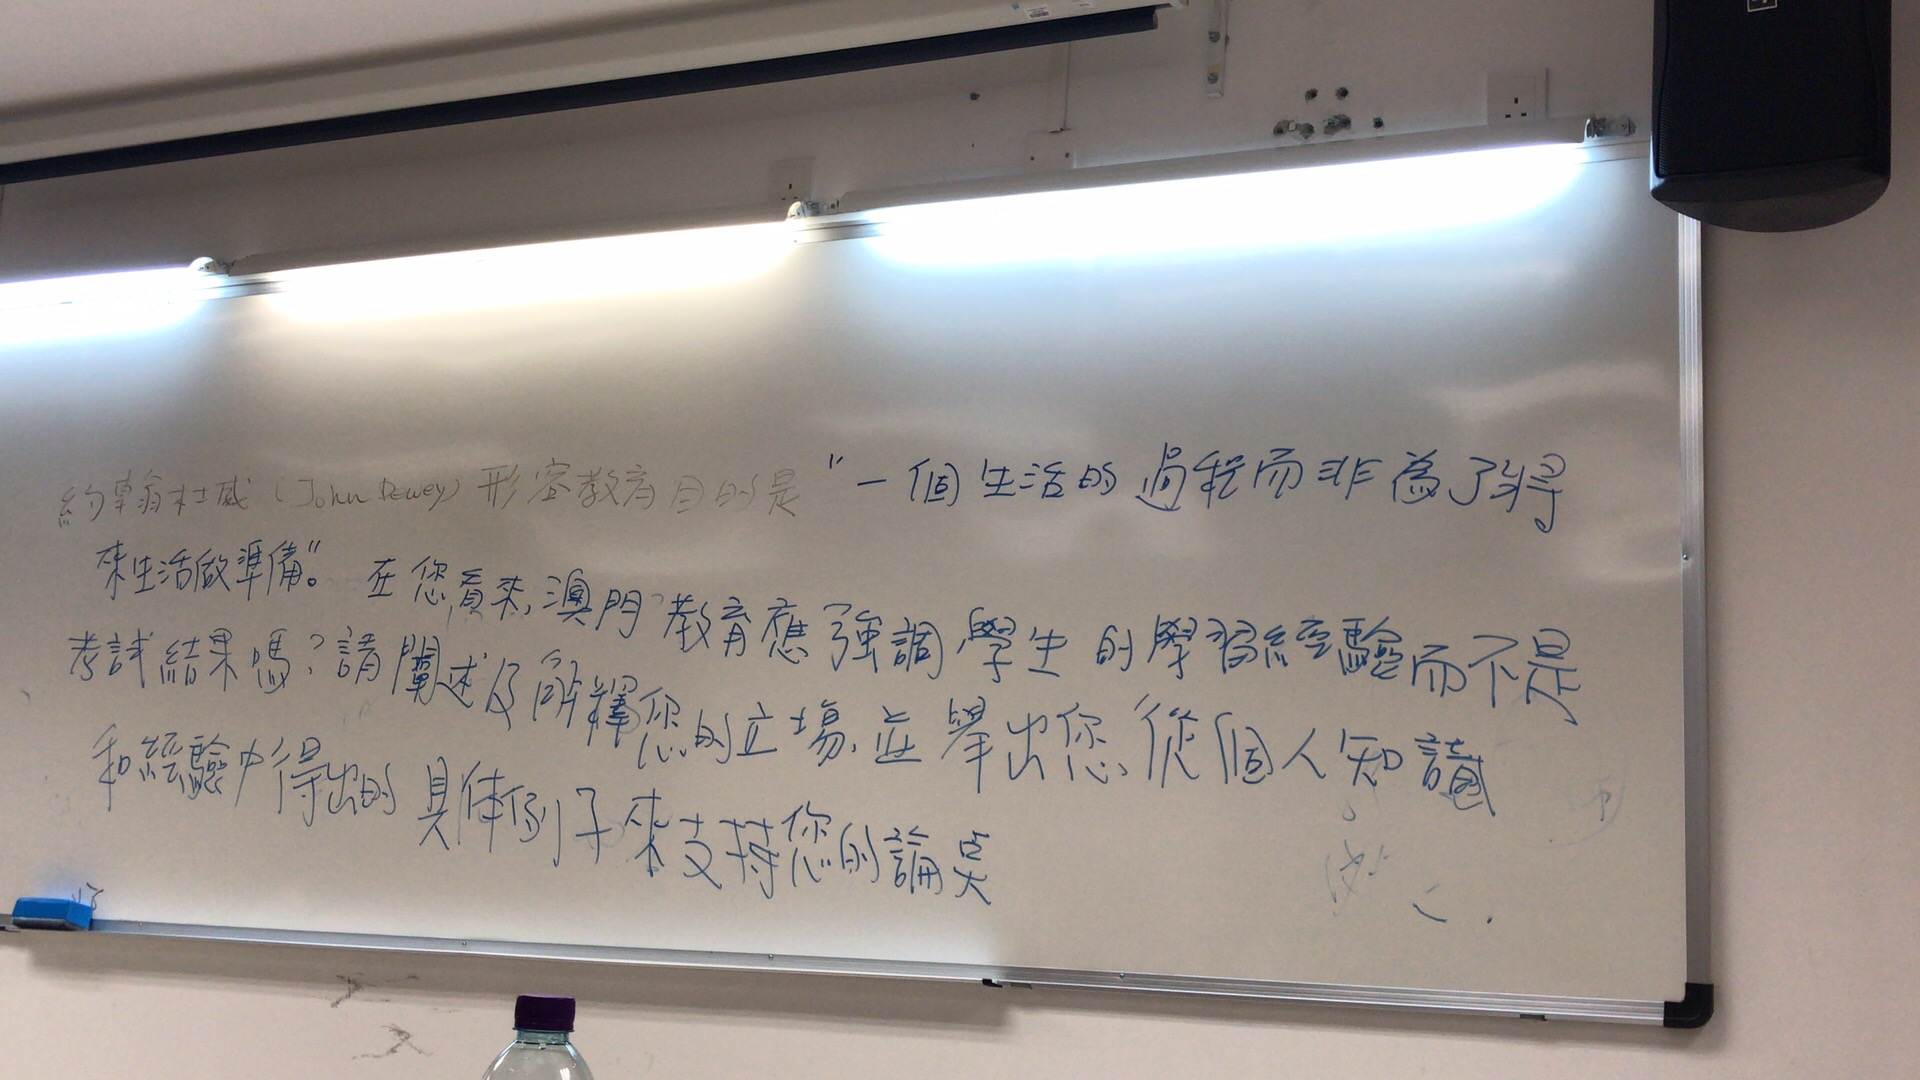 約翰杜威(John Dewey)形容教育目的是"一個生活的過程而非為了將
來生活做準備"。在您看來,澳門教育應強調學生的學習經驗而不是
考試結果嗎?請闡述及解釋您的立場,並舉出您從個人知識
和經驗中得出的具体例子來支持您的論点